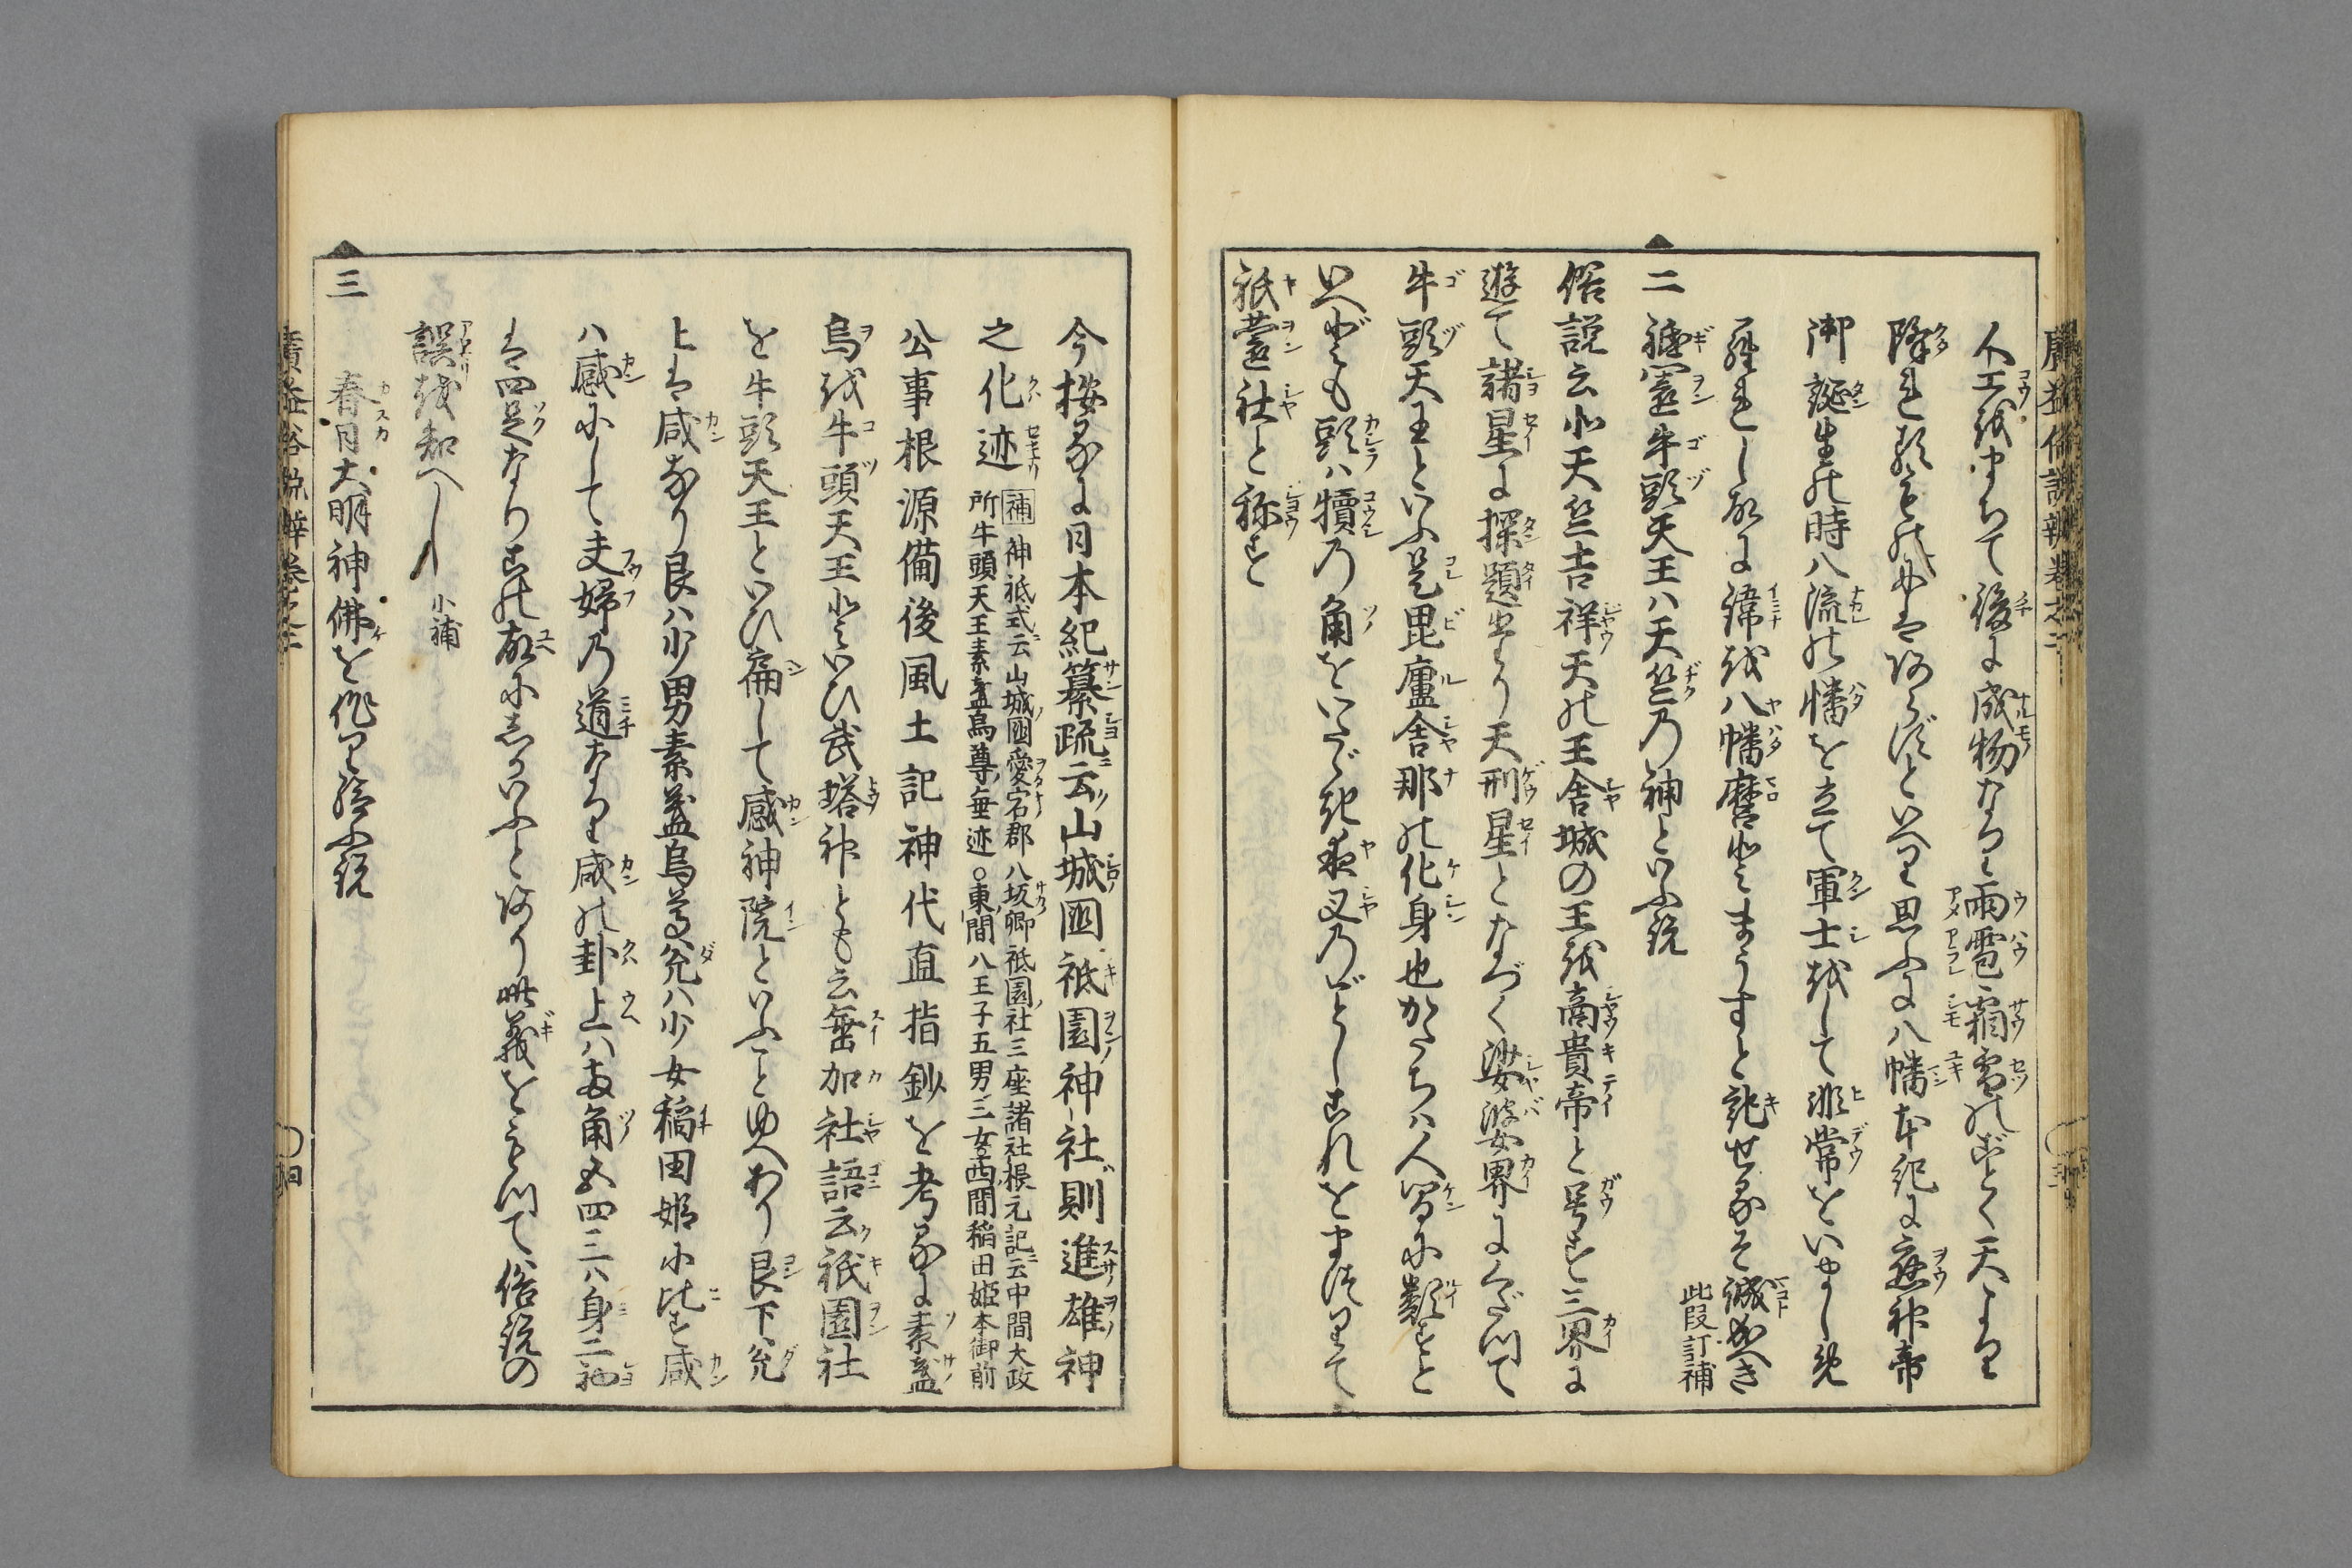 廣益俗説辨巻之二
人工をまちて後に成物なり雨雹霜雪のごとく天より
降たるものにはあらずといへり思ふに八幡本紀に應神帝
御誕生の時八流の幡を立て軍士をして非常をいましめ
られし故に諱を八幡麿とまうすと記せるぞ誠なるべき
此段訂補
二 祇園牛頭天王ハ天竺の神といふ説
俗説云北天竺吉祥天の王舎城の王を高貴帝と号す三界に
遊て諸星に探題たり天刑星となづく娑婆界にくだつて
牛頭天王といふ是毘盧舎那の化身也かたちハ人間に類すと
いへども頭ハ犢の角をいたゞき夜叉のごとしこれをまつりて
祇園社と称す
今按るに日本紀纂疏云山城國祇園神社則進雄神
之化迹
補神祇式云山城國愛宕郡八坂郷祇園社三座諸社根元記云中間大政
所牛頭天王素盞烏尊垂迹○東間八王子五男三女西間稲田姫本御前
公事根源備後風土記神代直指鈔を考るに素盞
烏を牛頭天王といひ武塔神とも云垂加社語云祇園社
を牛頭天王といひ扁して感神院といふことゆへあり艮下兌
上は咸なり艮ハ少男素盞烏尊兌ハ少女稲田姫に比す咸
ハ感にして夫婦の道なり咸の卦上ハ故角五四三ハ身二初
は四足なりその故にしかいふとあり此義をもつて俗説の
誤を知べし
小補
三 春日大明神佛を作り給ふ説
廣益俗説辨巻之二
四